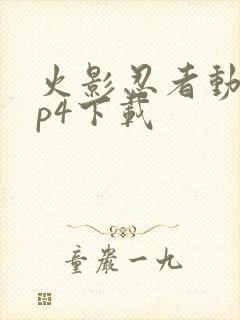 火影忍者動
p4下載
童嚴一九